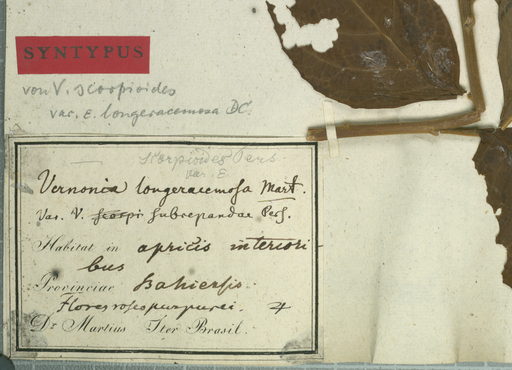 SYNTYPUS
von V. scorpioides
var. ε. longeracemosa DC.
scorpioides Pers
var. ε
Vernonia longeracemosa Mart.
Var. V. scorpi subrepandae Pers.
Habitat in apricis interiori-
bus
Provinciae Bahiensis.
Flores roseopurpurei. ♃
Dr. Martius Iter Brasil.